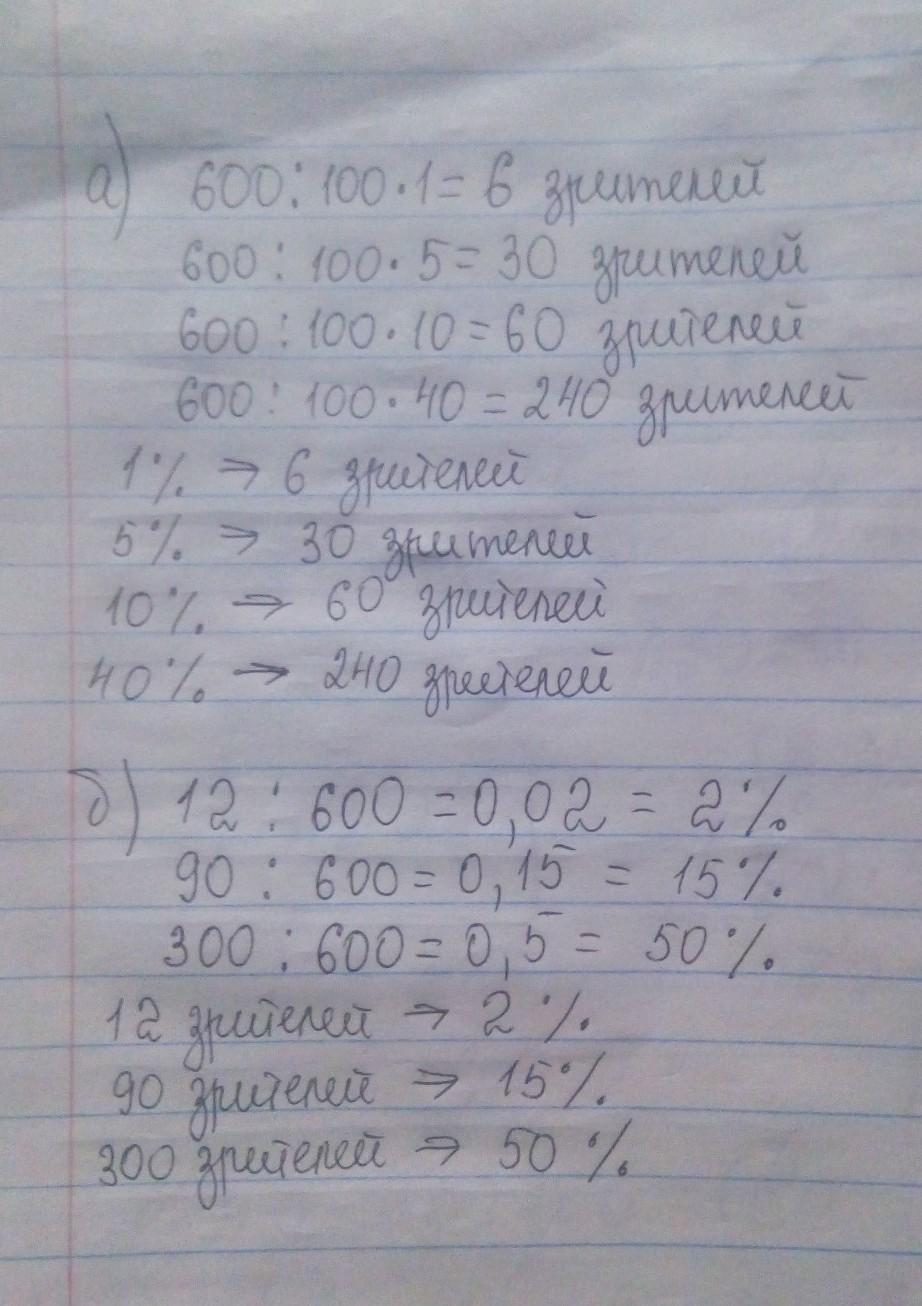 а) 600 : 100 · 1 = 6 зрителей
600 : 100 · 5 = 30 зрителей
600 : 100 · 10 = 60 зрителей
600 : 100 · 40 = 240 зрителей
1% → 6 зрителей
5% → 30 зрителей
10% → 60 зрителей
40% → 240 зрителей
б) 12 : 600 = 0,02 = 2%
90 : 600 = 0,15 = 15%
300 : 600 = 0,5 = 50%
12 зрителей → 2%
90 зрителей → 15%
300 зрителей → 50%